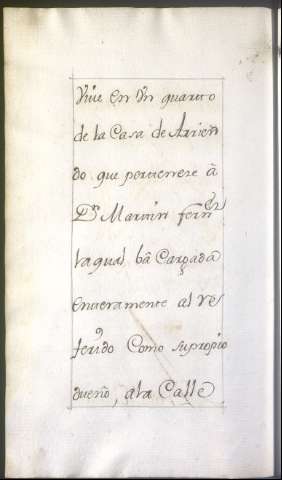 Vive en Vn quarto
de la Casa de Arrien
do que pertenese â
Dn. Martin fernz.
la qual bâ Cargada
enteramente al res
ferido Como supropio
dueño, ala Calle